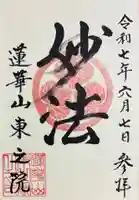 令和七年六月七日参拝
妙法
蓮華山東之院